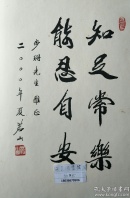 知足常樂
能忍自安
少府先生雅正
二〇〇〇年夏若山